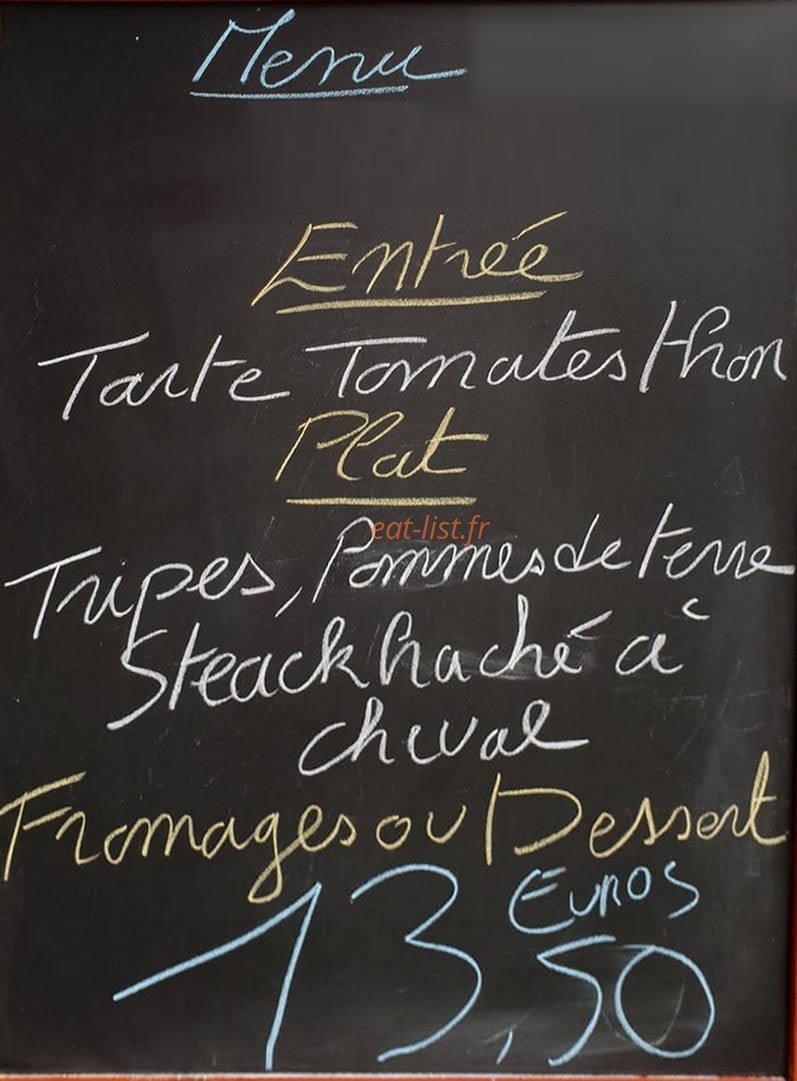 Menu
Entrée
Tarte Tomates thon
Plat
eat-list.fr
Tripes, Pommes de terre
Steack haché à
cheval
Fromages ou Dessert
Euros
13,50